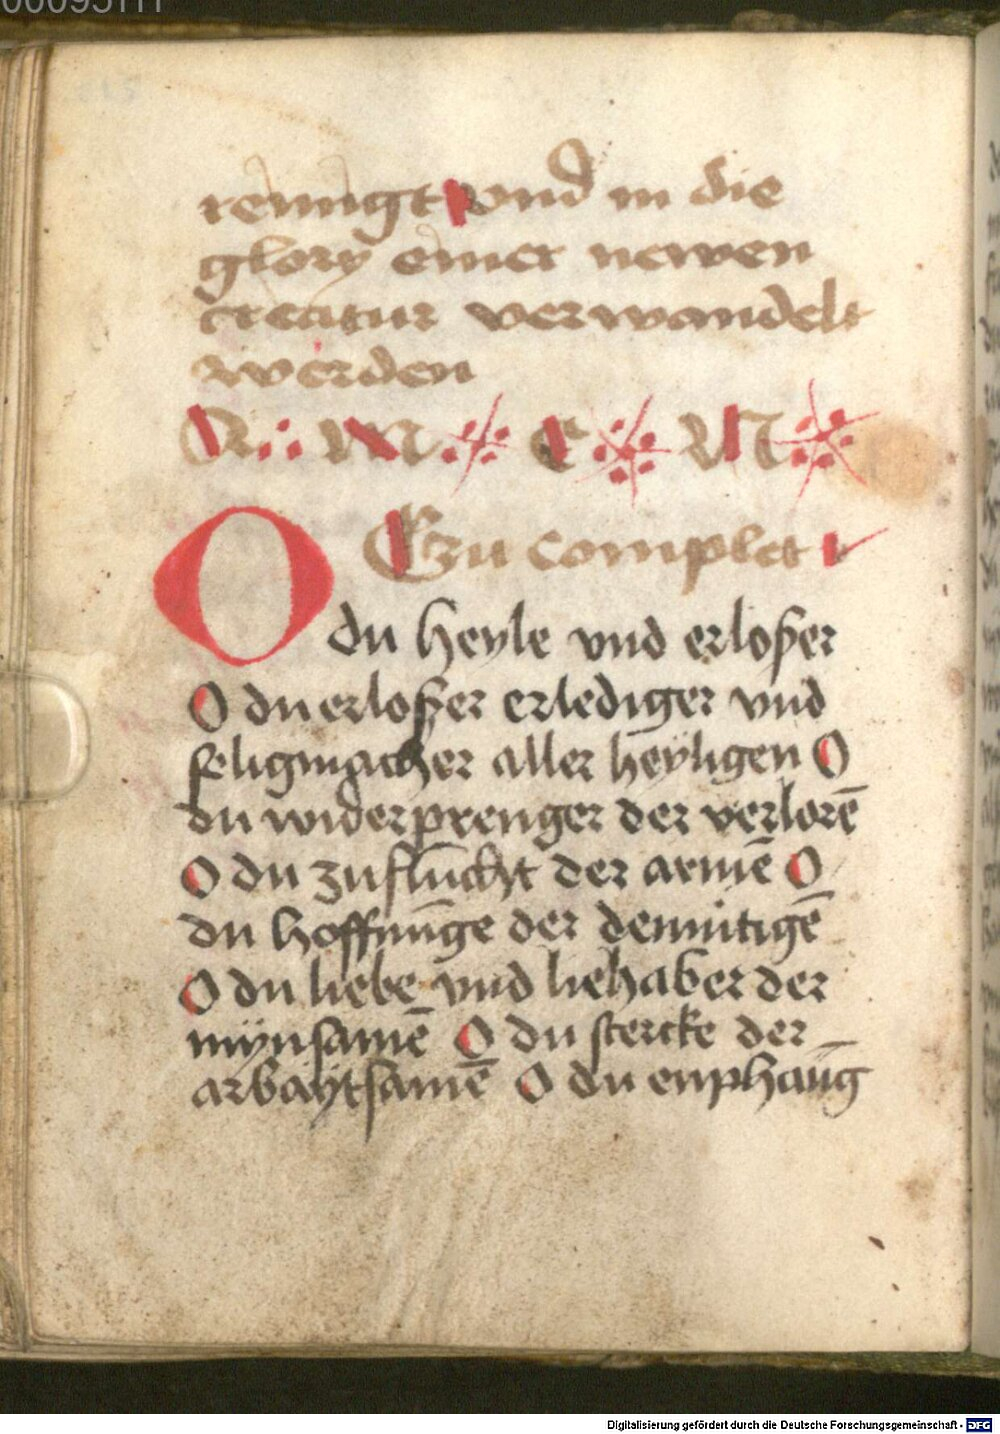 reinigt vnd in die
glory einer newen
creatur verwandelt
werden
A M E N
Czu complet
O du heyle vnd erloßer
O du erloßer erlediger vnd
seligmacher aller heyligen O
du widerprenger der verlorē
O du zuflucht der armē O
du hoffnūge der demütigē
O du liebe vnd liebhaber der
mynsamē O du stercke der
arbaytsamē O du enphāūg
Digitalisierung gefördert durch die Deutsche Forschungsgemeinschaft - DFG